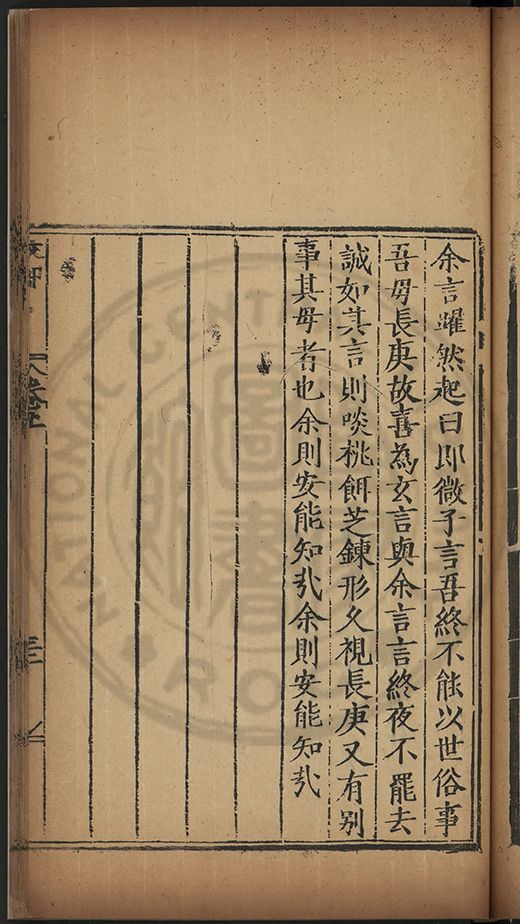 余言躍然起曰即微子言吾終不能以世俗事
吾母長庚故喜為玄言與余言言終夜不罷去
誠如其言則啖桃餌芝鍊形久視長庚又有別
事其母者也余則安能知㢤余則安能知㢤